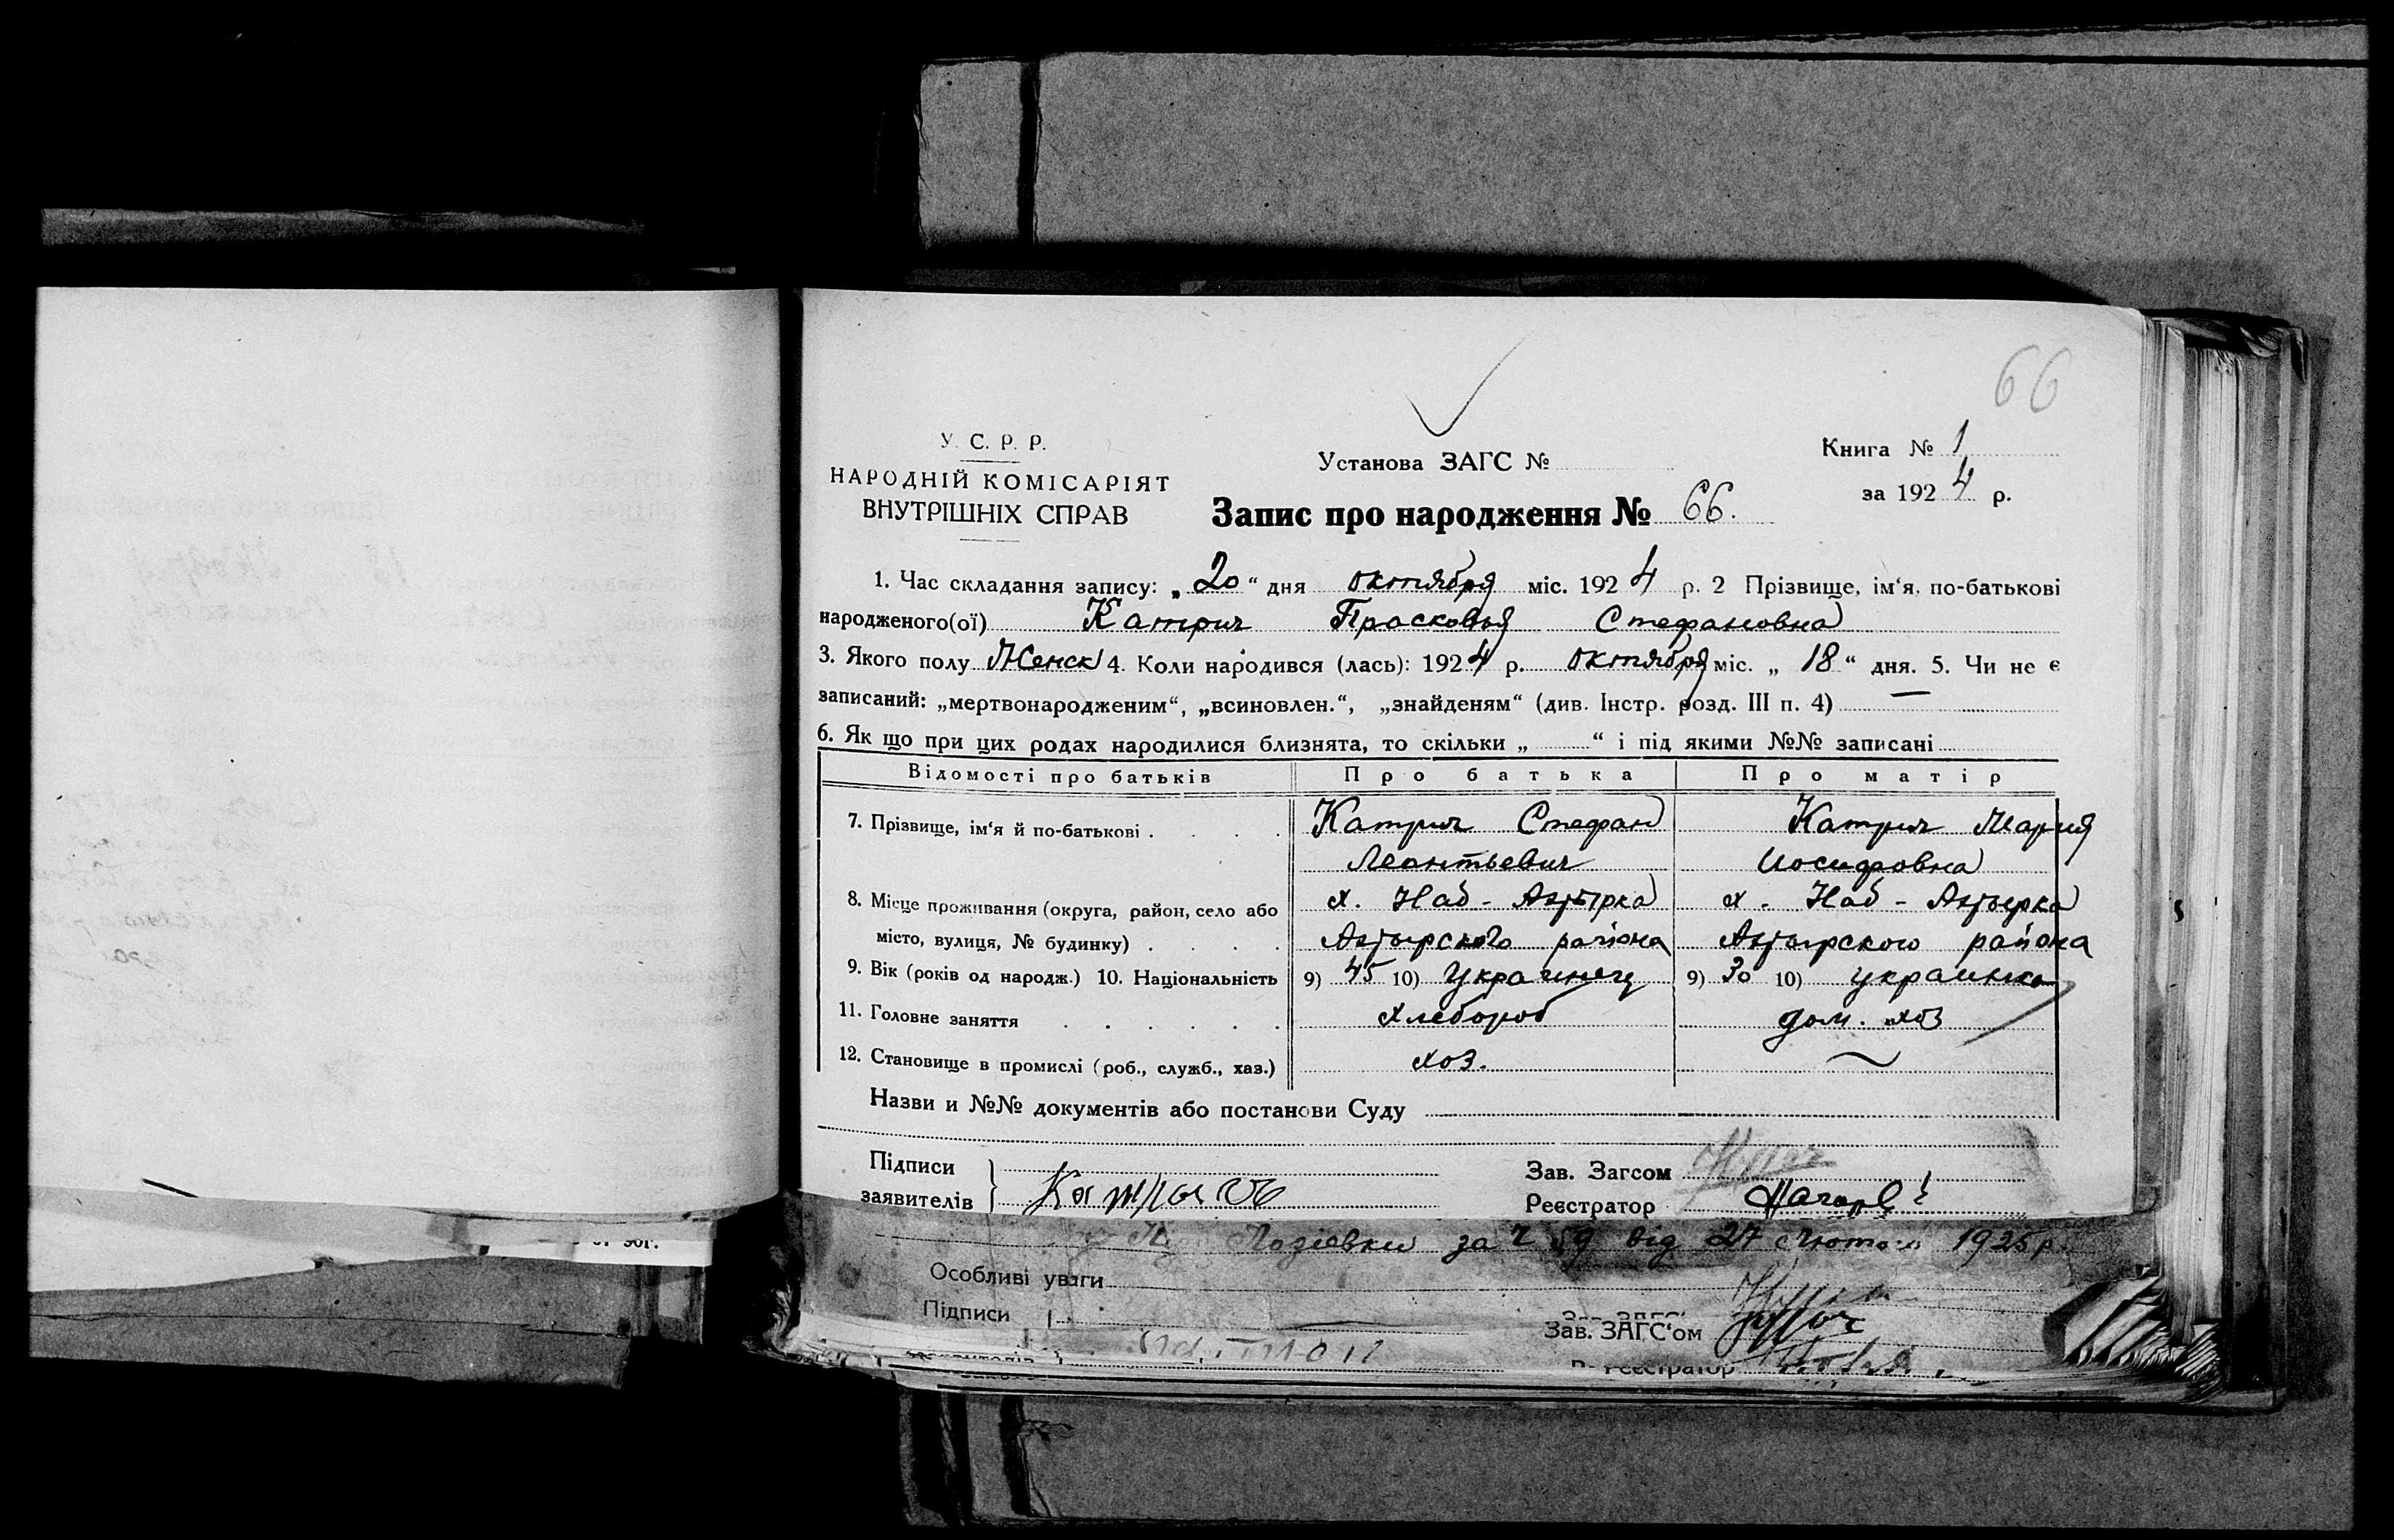 66
У. С. Р. Р.
НАРОДНІЙ КОМІСАРІЯТ
ВНУТРІШНІХ СПРАВ
Установа ЗАГС №
Книга № 1
за 1924 р.
Запис про народження № 66.
1. Час складання запису: „20“ дня октября міс. 1924 р. 2 Прізвище, ім‘я, по-батькові
народженого(ої) Катрич Прасковья Стефановна
3. Якого полу Женск 4. Коли народився (лась): 1924 р. октября міс. „18“ дня. 5. Чи не є
записаний: „мертвонародженим“, „всиновлен.“, „знайденям“ (див. Інстр. розд. III п. 4) —
6. Як що при цих родах народилися близнята, то скільки „ “ і під якими №№ записані
Відомості про батьків Про батька Про матір
7. Прізвище, ім‘я й по-батькові . . . . Катрич Стефан Катрич Мария
Леонтьевич Иосифовна
8. Місце проживання (округа, район, село або х. Наб - Ахтырка х. Наб - Ахтырка
місто, вулиця, № будинку) . . . . Ахтырского района Ахтырского района
9. Вік (років од народж.) 10. Національність 9) 45 10) Украинец 9) 30 10) украинка
11. Головне заняття . . . . . . хлебороб дом. хоз
12. Становище в промислі (роб., служб., хаз.) хоз. ~
Назви и №№ документів або постанови Суду
Підписи
заявителів
Катричь
Зав. Загсом
Реєстратор
за ч 59 від 27 лютого 1925 р.
Особливі уваги
Підписи
Зав. ЗАГС‘ом
Реєстратор